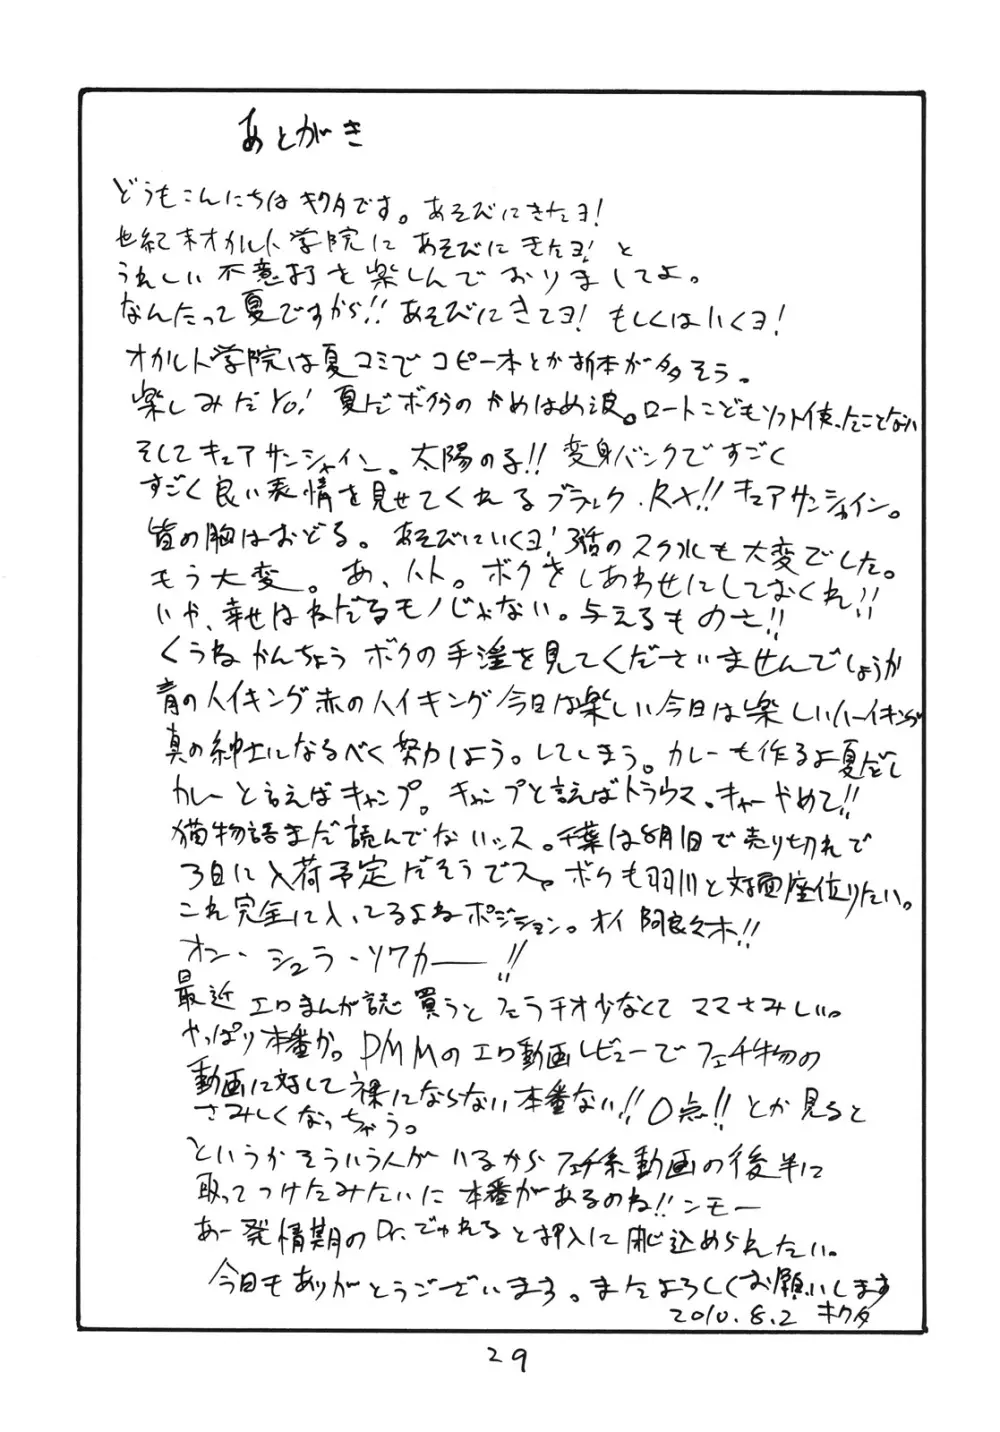 あとがき
どうもこんにちはキクタです。あそびにきたヨ!
世紀末オカルト学院に あそびに きたヨ!と
うれしい 不意打を楽しんで おりましてよ。
なんたって夏ですから!! あそびにきてヨ! もしくはいくヨ!
オカルト学院は夏コミで コピー本とか新本が多そう。
楽しみだYO! 夏だボクらの かめはめ波。ロートこどもソフト使ったことない
そしてキュアサンシャイン。太陽の子!! 変身バンクですごく
すごく良い表情を見せてくれるブラック.RX!! キュアサンシャイン。
皆の胸はおどる。あそびにいくヨ! 3話のスク水も大変でした。
もう大変。あ、ハト。ボクをしあわせにしておくれ!!
いや、幸せはねだるモノじゃない。与えるものさ!!
くうねかんちょう ボクの手淫を見てくださいませんでしょうか
青のハイキング赤のハイキング今日は楽しい今日は楽しいハーイキング
真の紳士になるべく努力しよう。してしまう。カレーも作るよ夏だし
カレーと言えばキャンプ。キャンプと言えばトラウマ。キャーやめて!!
猫物語まだ読んでないッス。千葉は8月1日で売り切れで
3日に入荷予定だそうでス。ボクも羽川と対面座位りたい。
これ完全に入ってるよねポジション。オイ 阿良々木!!
オン・シュラ・ソワカー!!
最近 エロまんが誌 買うと フェラチオ少なくて ママさみしい。
やっぱり本番か。DMMのエロ動画レビューで フェチ物の
動画に対して裸にならない本番ない!! 0点!! とか見ると
さみしくなっちゃう。
というかそういう人がいるからフェチ系動画の後半に
取ってつけたみたいに 本番があるのね!! ンモー
あー発情期のDr.でかれると押入に閉じ込められたい。
今日もありがとうございます。またよろしくお願いします
2010.8.2 キクタ
29